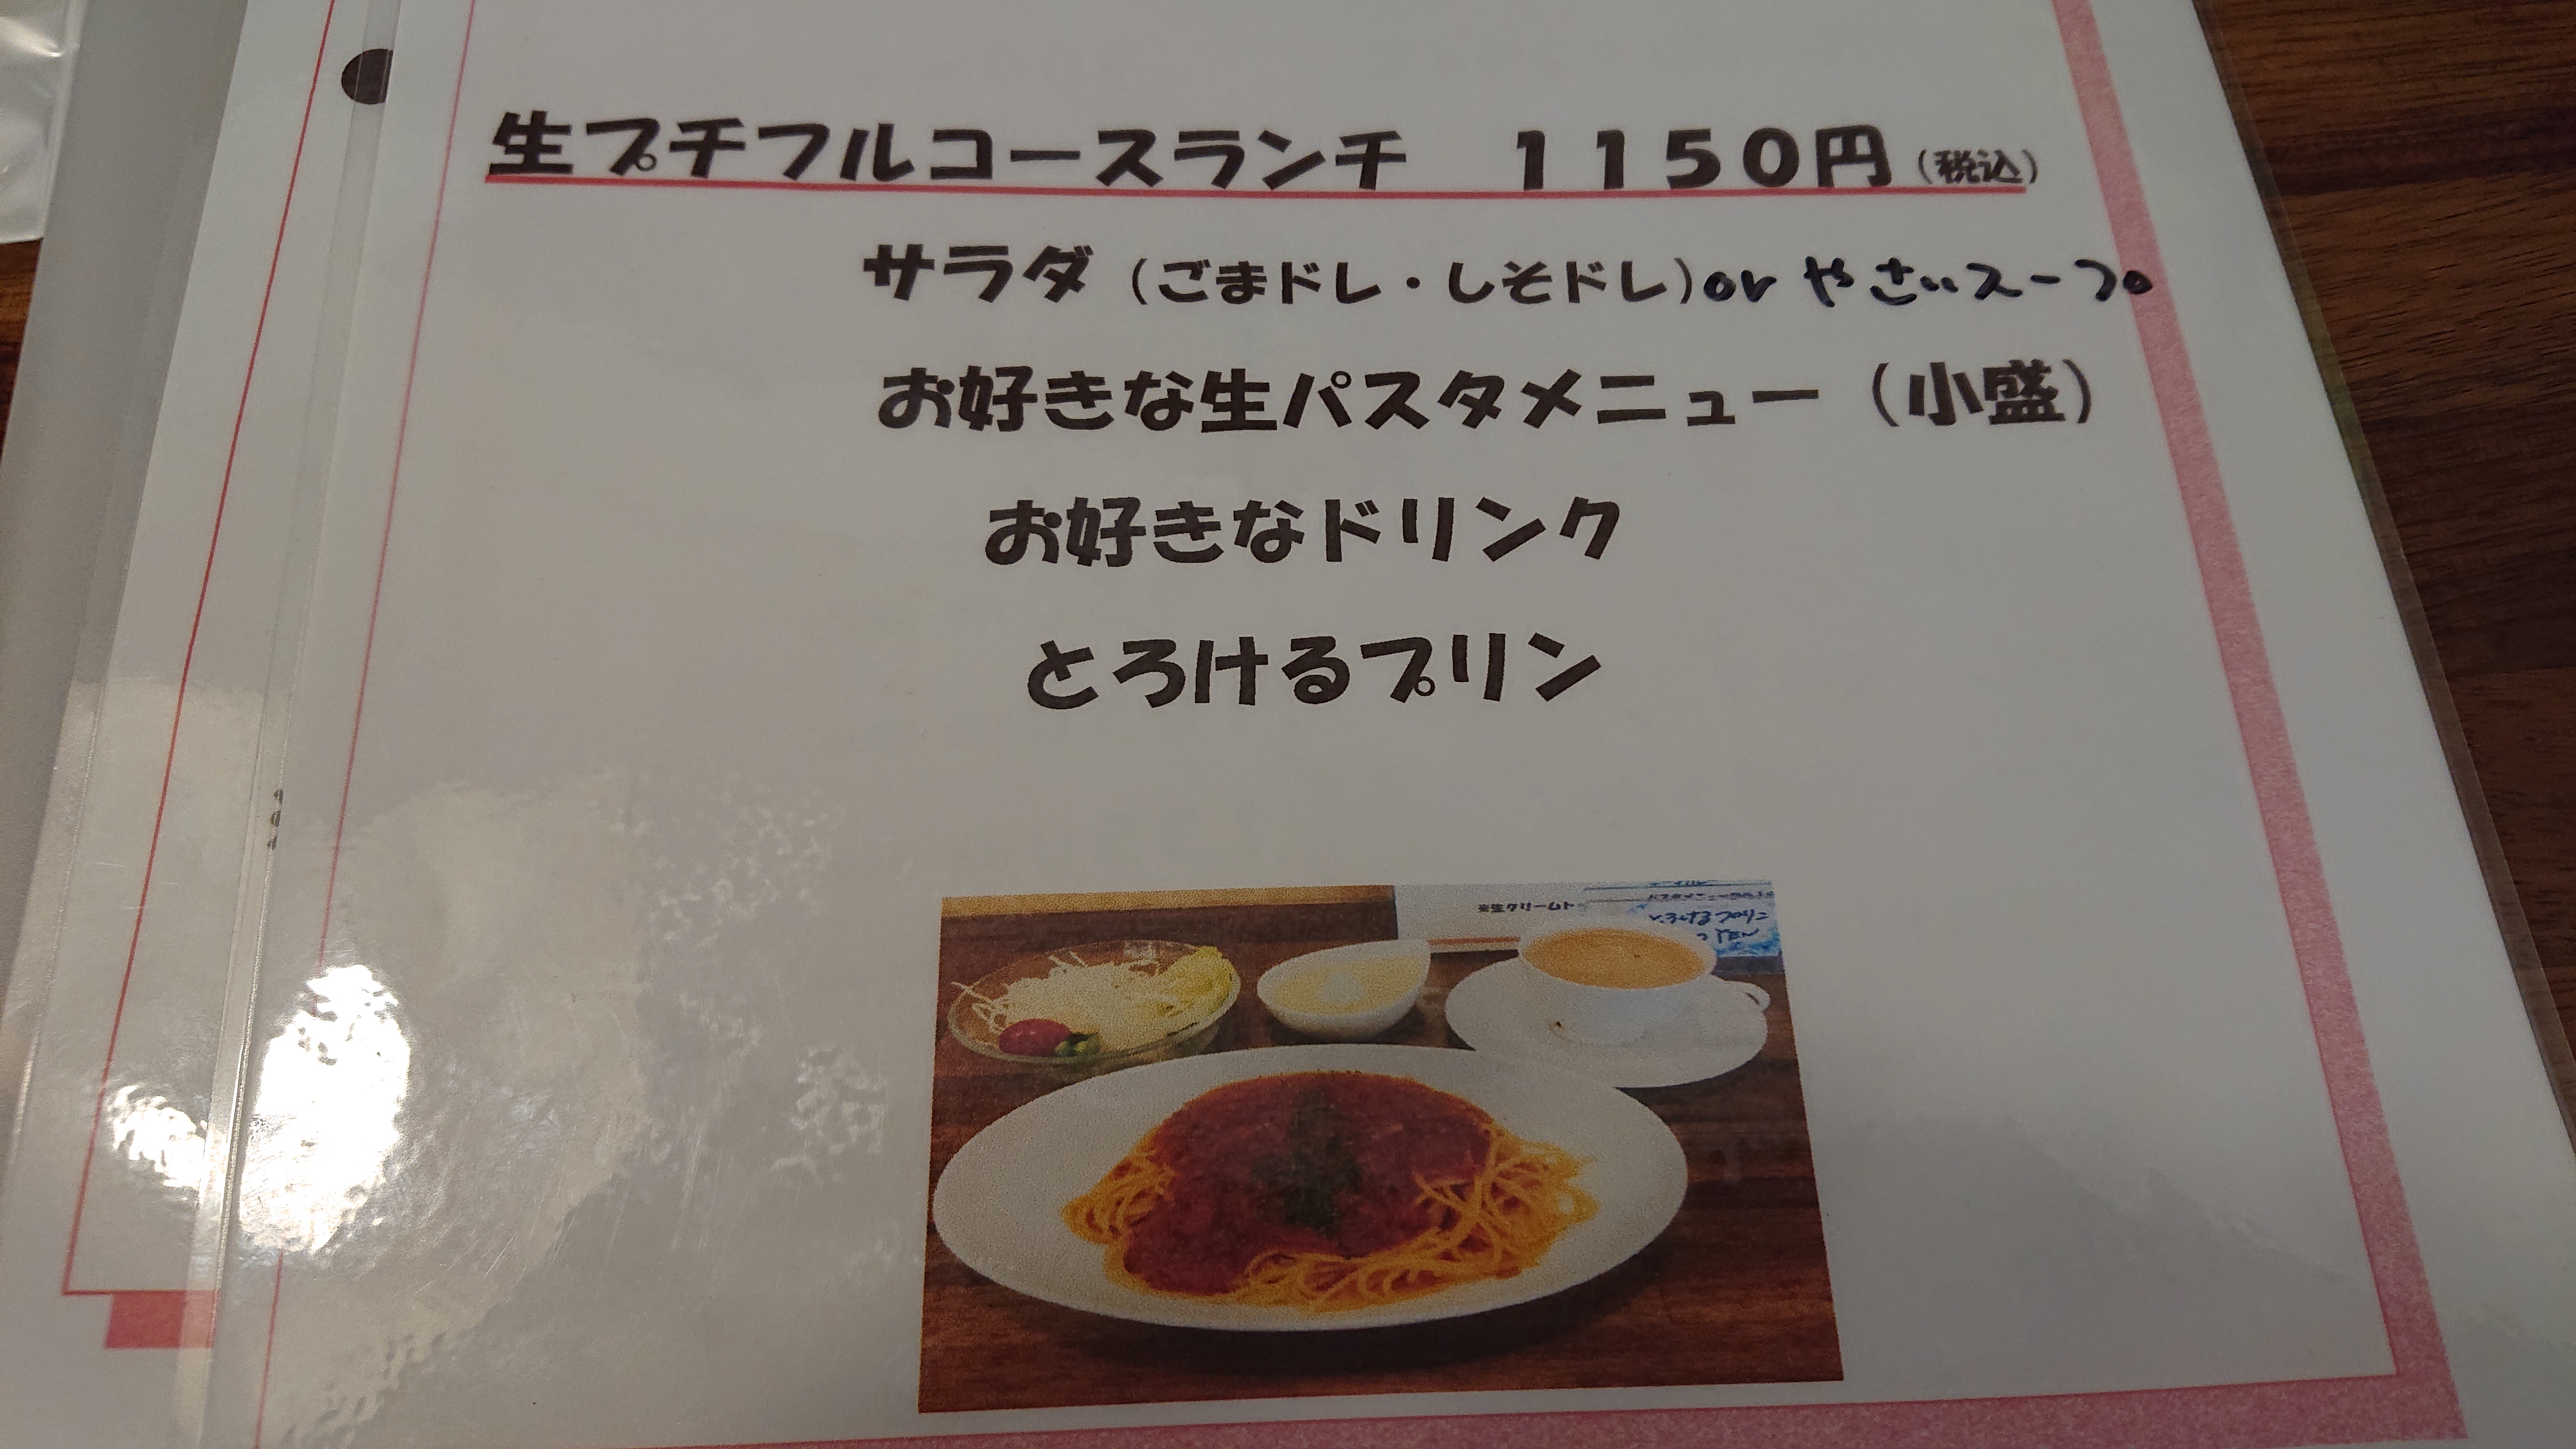 生プチフルコースランチ　１１５０円（税込）
サラダ（ごまドレ・しそドレ）or やさいスープ
お好きな生パスタメニュー（小盛）
お好きなドリンク
とろけるプリン
※生クリームト
とろけるプリン